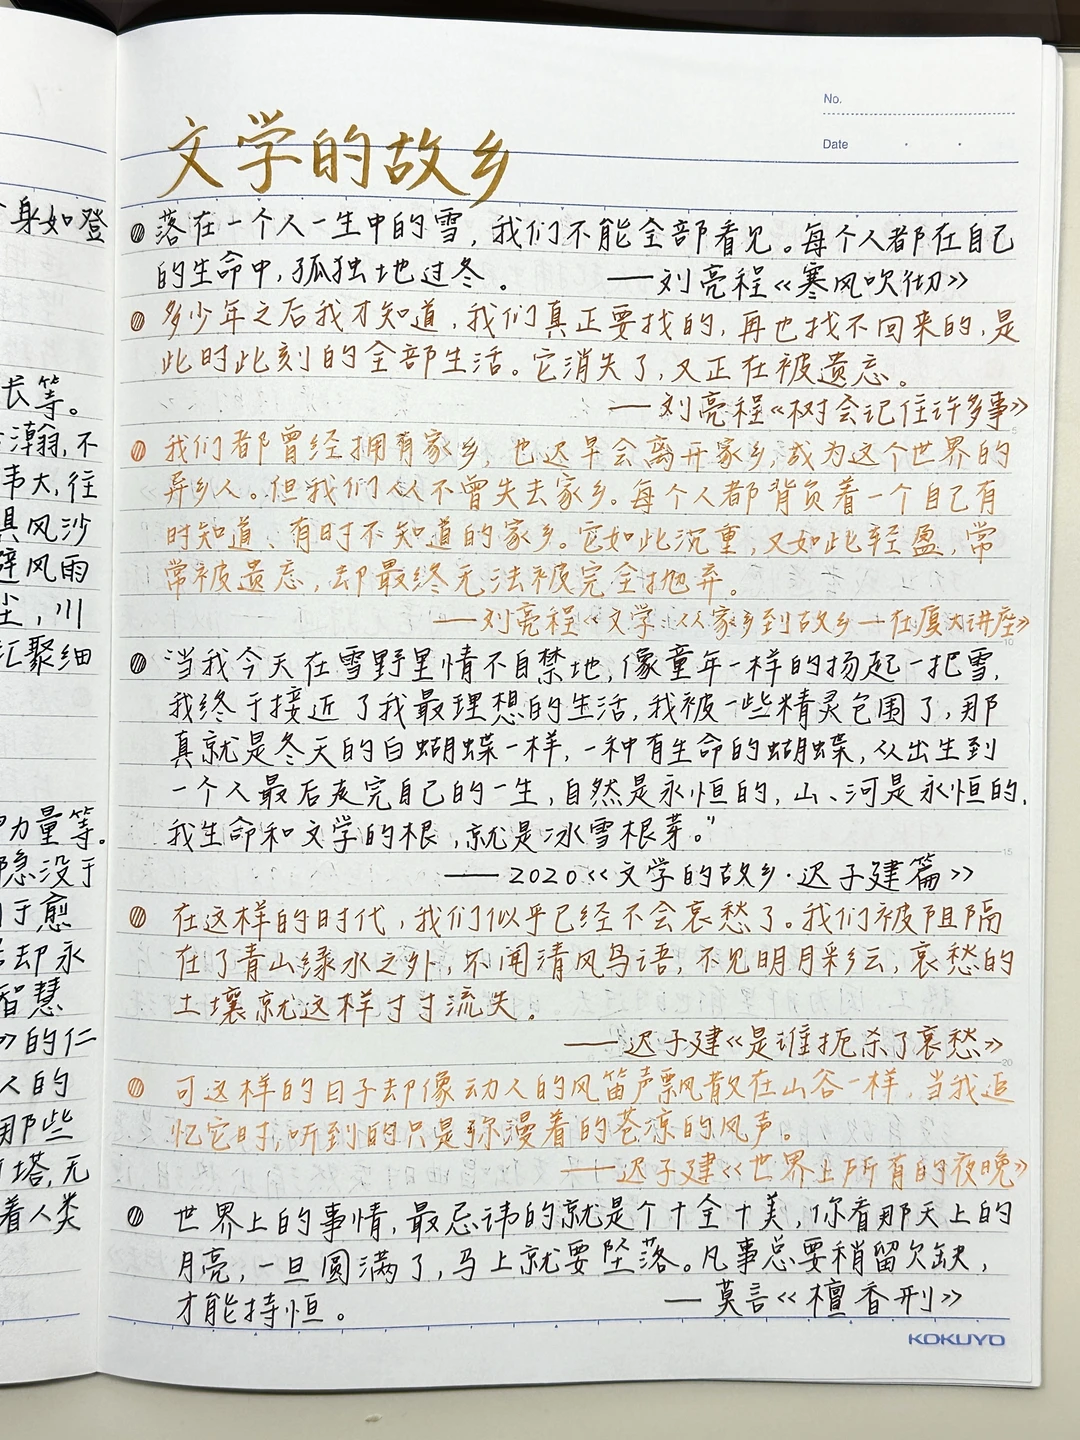 No.
Date
文学的故乡
落在一个人一生中的雪，我们不能全部看见。每个人都在自己
的生命中，孤独地过冬。 ——刘亮程《寒风吹彻》
多少年之后我才知道，我们真正要找的，再也找不回来的，是
此时此刻的全部生活。它消失了，又正在被遗忘。
——刘亮程《树会记住许多事》
我们都曾经拥有家乡，也迟早会离开家乡，成为这个世界的
异乡人。但我们从不曾失去家乡。每个人都背负着一个自己有
时知道、有时不知道的家乡。它如此沉重，又如此轻盈，常
常被遗忘，却最终无法被完全抛弃。
——刘亮程《文学：从家乡到故乡—在厦大讲座》
当我今天在雪野里情不自禁地，像童年一样的扬起一把雪，
我终于接近了我最理想的生活，我被一些精灵包围了，那
真就是冬天的白蝴蝶一样，一种有生命的蝴蝶，从出生到
一个人最后走完自己的一生，自然是永恒的，山、河是永恒的，
我生命和文学的根，就是冰雪根芽。”
——2020《文学的故乡·迟子建篇》
在这样的时代，我们似乎已经不会哀愁了。我们被阻隔
在了青山绿水之外，不闻清风鸟语，不见明月彩云，哀愁的
土壤就这样寸寸流失。
——迟子建《是谁扼杀了哀愁》
可这样的日子却像动人的风笛声飘散在山谷一样，当我追
忆它时，听到的只是弥漫着的苍凉的风声。
——迟子建《世界上所有的夜晚》
世界上的事情，最忌讳的就是个十全十美，你看那天上的
月亮，一旦圆满了，马上就要坠落。凡事总要稍留欠缺，
才能持恒。 —莫言《檀香刑》
KOKUYO
身如登
长等。
瀚，不
伟大，往
具风沙
避风雨
尘，川
汇聚细
力量等。
隐没于
于愈
却永
智慧
》的仁
人的
那些
塔，无
着人类